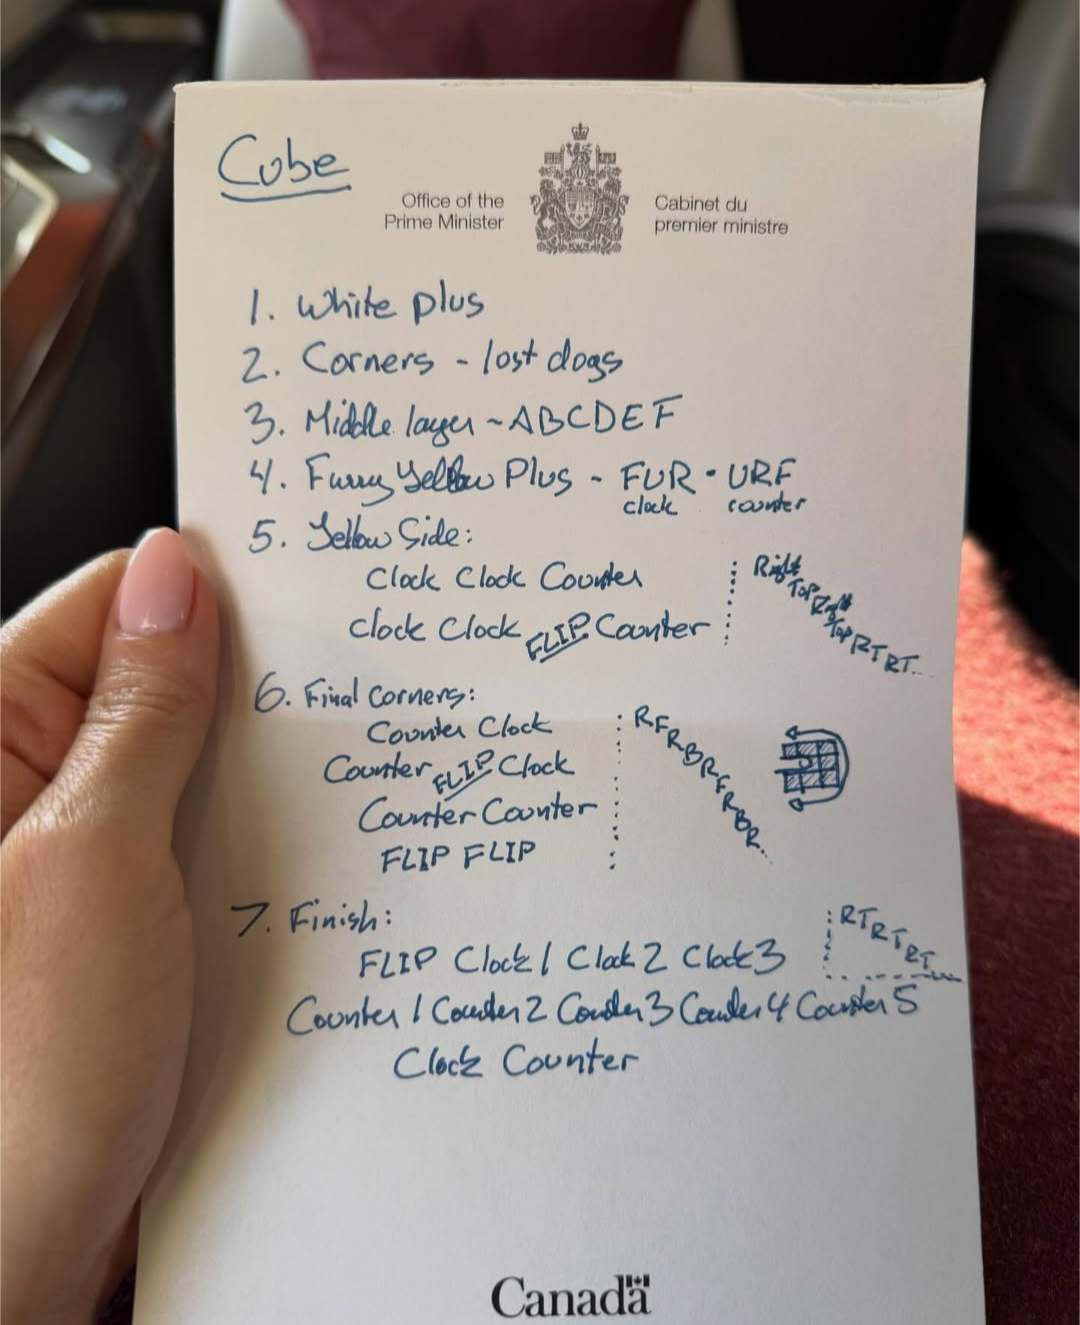 Cube
Office of the
Prime Minister
Cabinet du
premier ministre
1. White plus
2. Corners - lost dogs
3. Middle layer - ABCDEF
4. Furry Yellow Plus - FUR · URF
clock counter
5. Yellow Side:
Clock Clock Counter
Clock Clock FLIP Counter
Right
Top Right
Top RT RT...
6. Final Corners:
Counter Clock
Counter FLIP Clock
Counter Counter
FLIP FLIP
RFRBRFRBR...
7. Finish:
FLIP Clock 1 Clock 2 Clock 3
Counter 1 Counter 2 Counter 3 Counter 4 Counter 5
Clock Counter
RTRTRT...
Canada